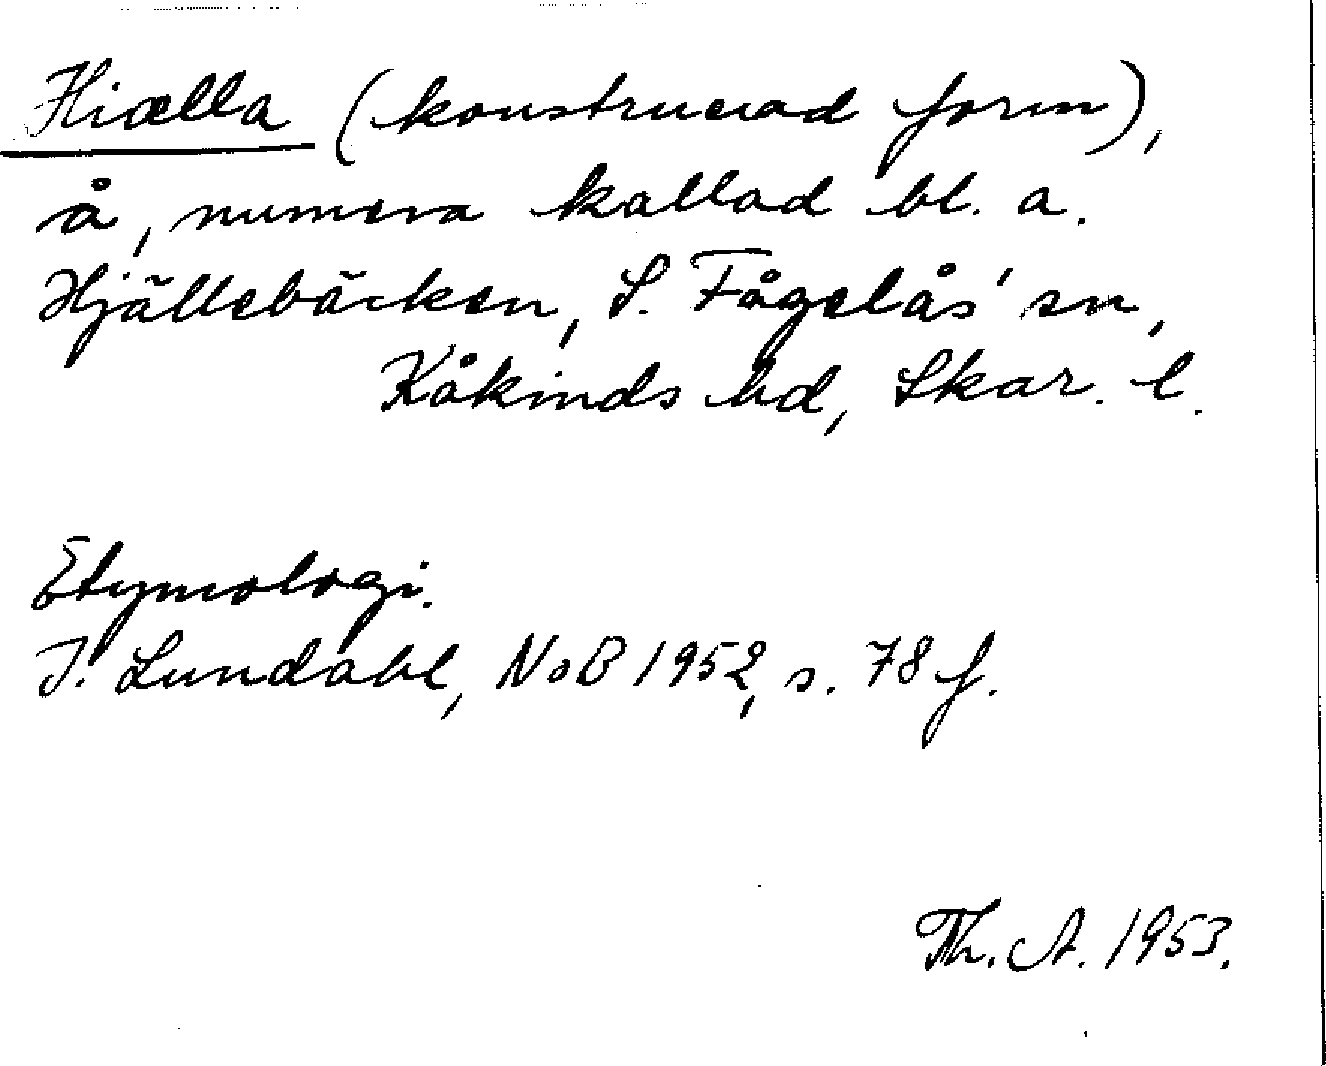 Hiælla (konstruerad form),
å, numera kallad bl. a.
Hjällebäcken, S. Fågelås' sn,
Kåkinds hd, Skar. l.
Etymologi.
I. Lundahl, NoB 1952, s. 78 f.
Th. A. 1953.